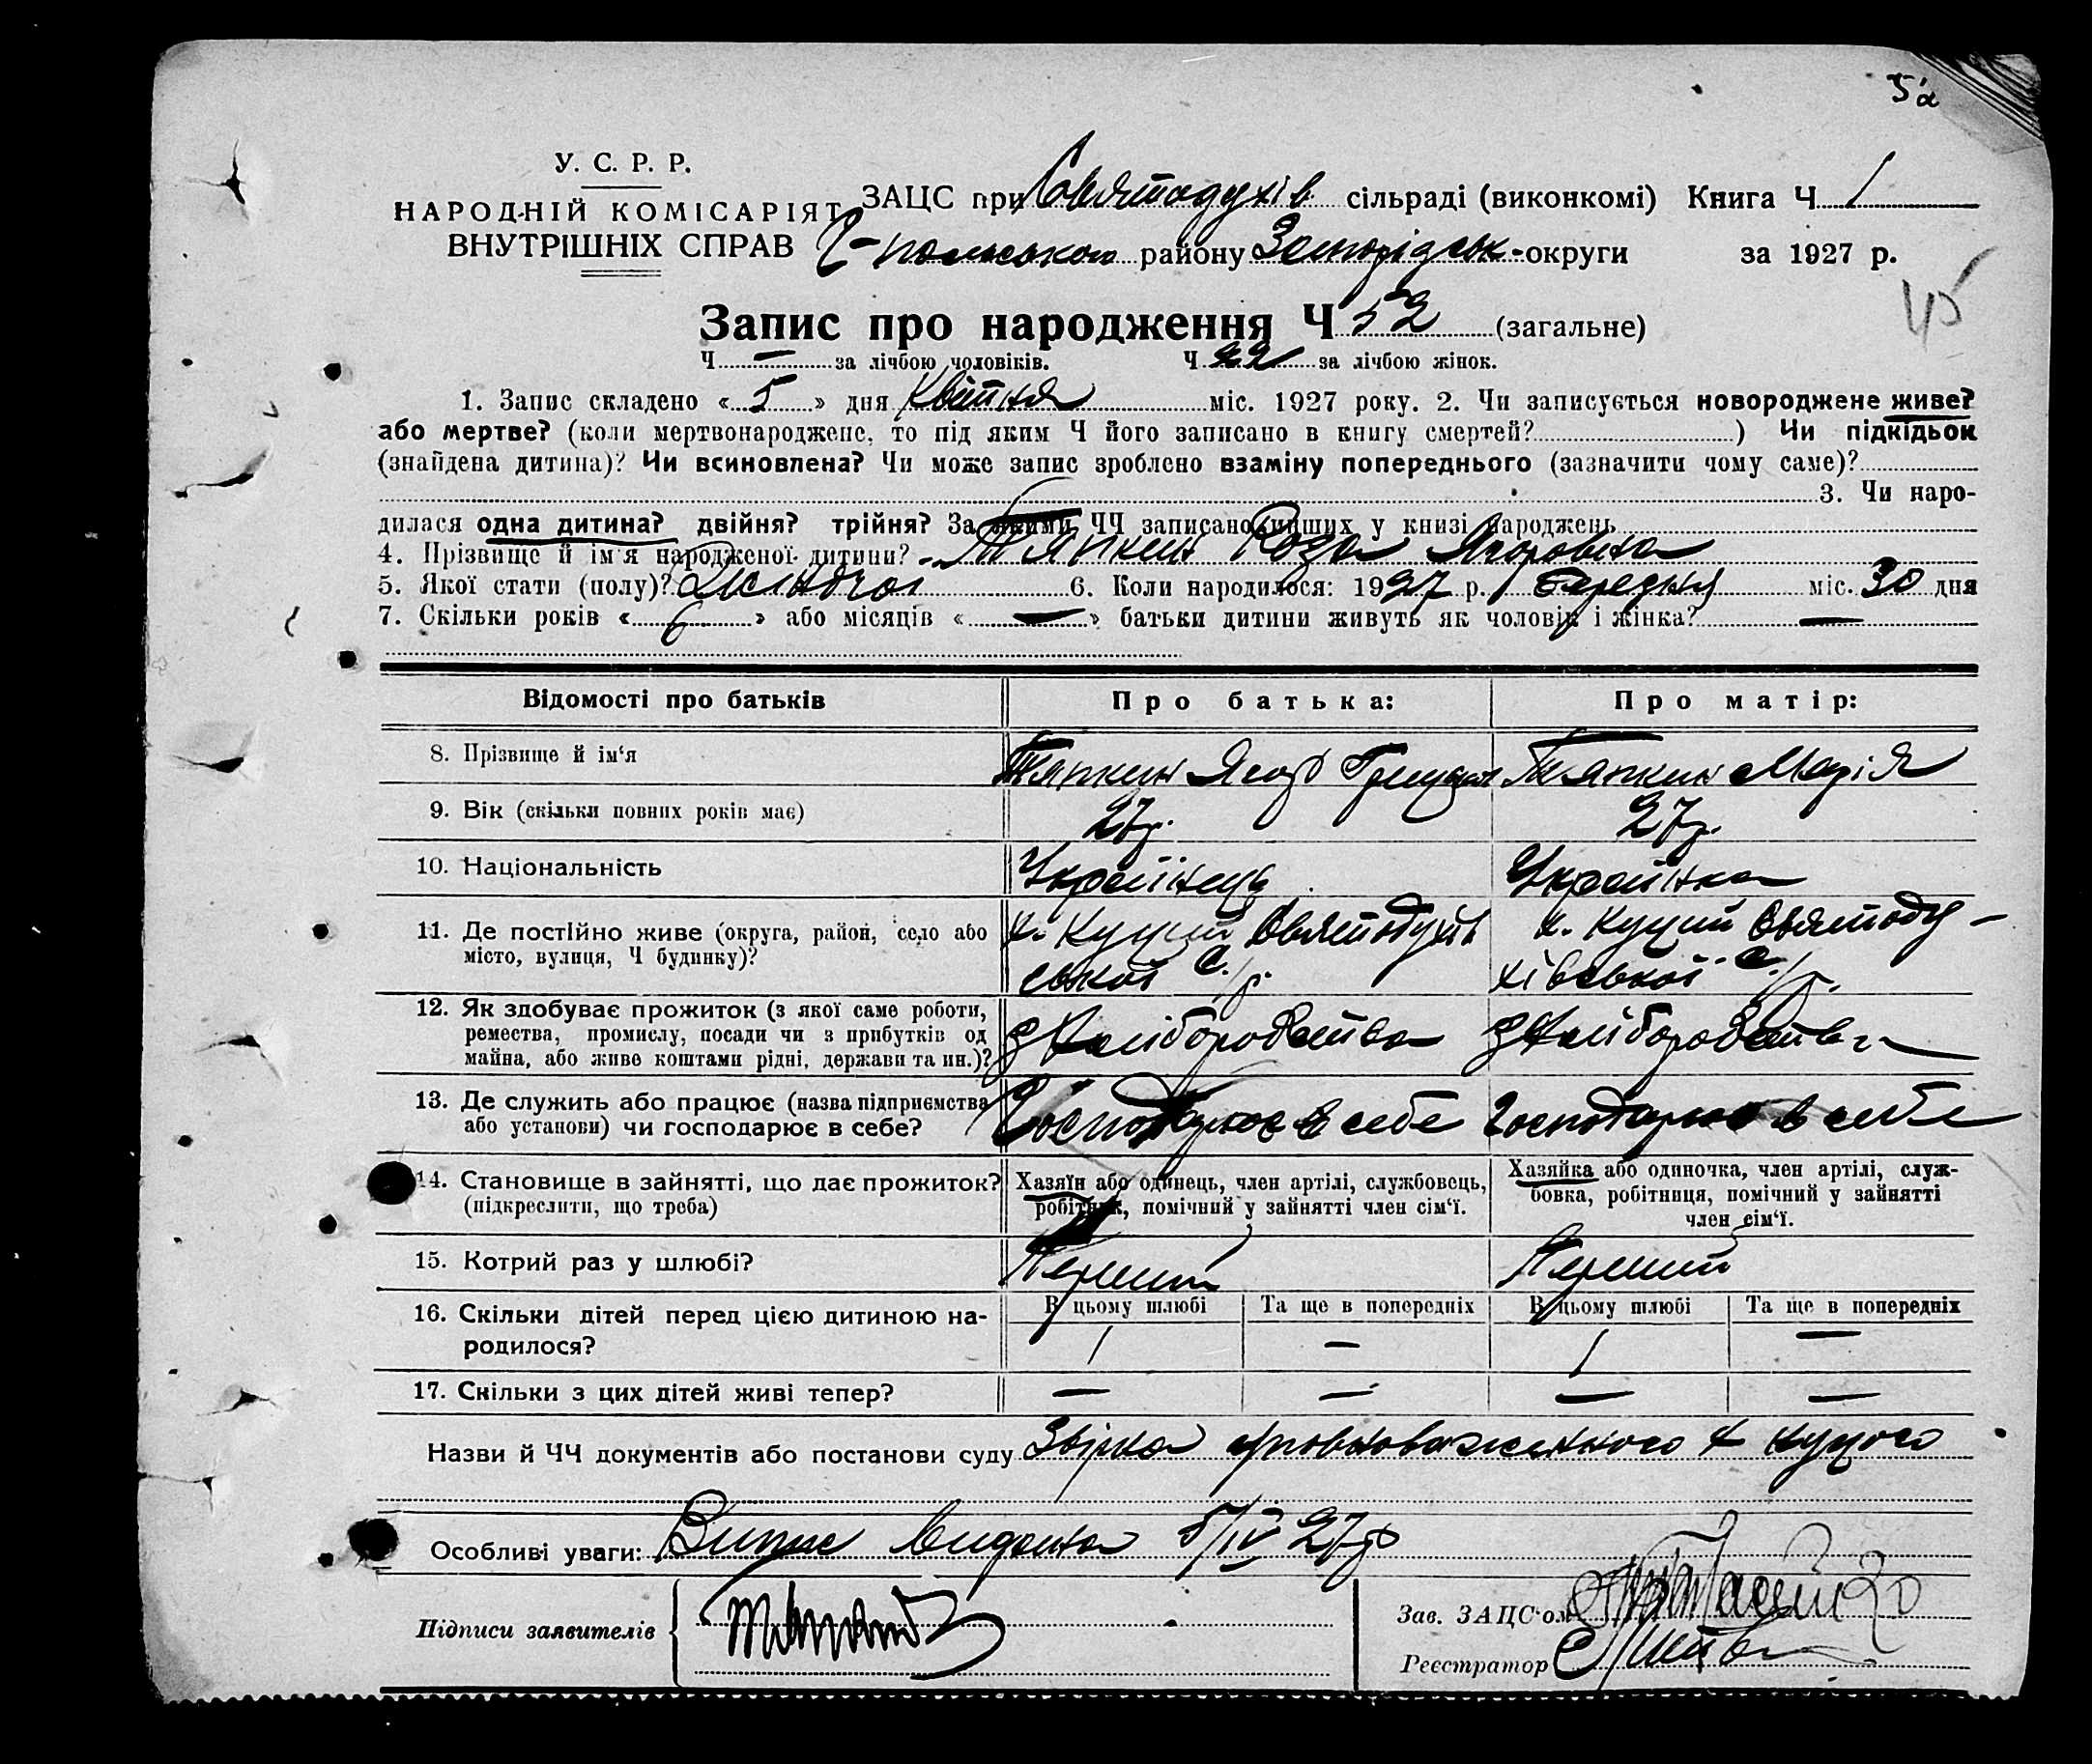 5а
У. С. Р. Р.
НАРОДНІЙ КОМІСАРІЯТ
ВНУТРІШНІХ СПРАВ
ЗАЦС при Святодухів сільраді (виконкомі) Книга Ч 1
району Запоріжськ. округи за 1927 р.
45
Запис про народження Ч 52 (загальне)
Ч — за лічбою чоловіків. Ч 22 за лічбою жінок.
1. Запис складено «5» дня Квітня міс. 1927 року. 2. Чи записується новороджене живе?
або мертве? (коли мертвонароджене, то під яким Ч його записано в книгу смертей? ) Чи підкідьок
(знайдена дитина)? Чи всиновлена? Чи може запис зроблено взаміну попереднього (зазначити чому саме)?
3. Чи наро-
дилася одна дитина? двійня? трійня? За якими ЧЧ записано инших у книзі народжень
4. Прізвище й ім'я народженої дитини? Тяпкин Роза Ягоровна
5. Якої стати (полу)? Жіночої 6. Коли народилося: 1927 р. березня міс. 30 дня
7. Скільки років «6» або місяців «—» батьки дитини живуть як чоловік і жінка? —
Відомості про батьків
Про батька:
Про матір:
8. Прізвище й ім'я
Тяпкин Ягор
Тяпкин Марія
9. Вік (скільки повних років має)
27 р.
27 р.
10. Національність
Українець
Українка
11. Де постійно живе (округа, район, село або
місто, вулиця, Ч будинку)?
х. Куций Святодухів
ської С/р.
х. Куций Святоду-
хівської С/р.
12. Як здобуває прожиток (з якої саме роботи,
ремества, промислу, посади чи з прибутків од
майна, або живе коштами рідні, держави та ин.)?
З хліборобства
З хліборобства
13. Де служить або працює (назва підприємства
або установи) чи господарює в себе?
Господарює в себе
Господарює в себе
14. Становище в зайнятті, що дає прожиток?
(підкреслити, що треба)
Хазяїн або одинець, член артілі, службовець,
робітник, помічний у зайнятті член сім'ї.
Хазяйка або одиночка, член артілі, служ-
бовка, робітниця, помічний у зайнятті
член сім'ї.
15. Котрий раз у шлюбі?
Перший
Перший
16. Скільки дітей перед цією дитиною на-
родилося?
В цьому шлюбі Та ще в попередніх В цьому шлюбі Та ще в попередніх
1 — 1 —
17. Скільки з цих дітей живі тепер?
— — — —
Назви й ЧЧ документів або постанови суду Звірка уповноваженного х куцого
Особливі уваги: Випис видана 5/IV 27 р
Підписи заявителів
Зав. ЗАЦС'ом
Реєстратор